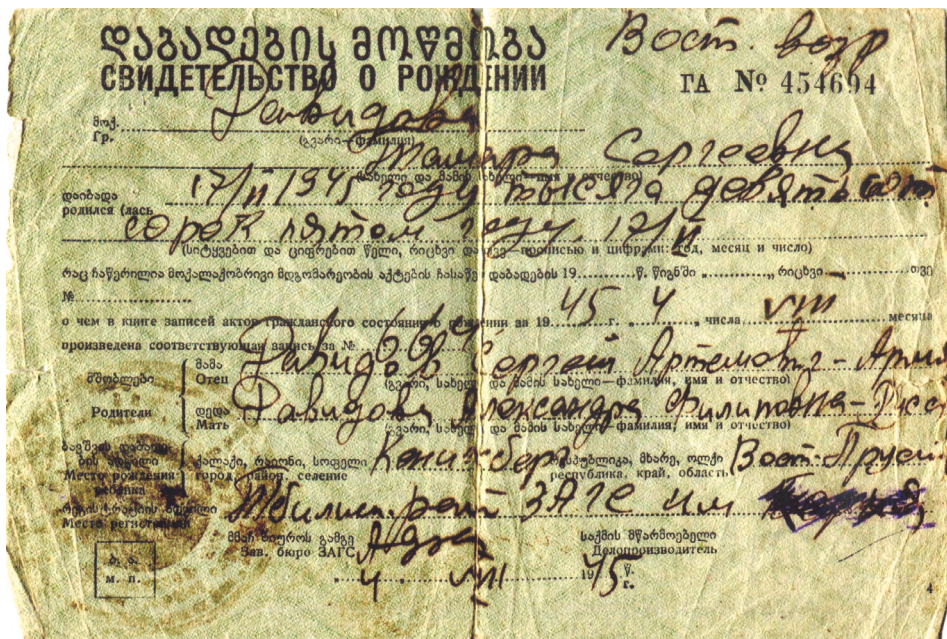 დაბადების მოწმობა
Вост. возр
СВИДЕТЕЛЬСТВО О РОЖДЕНИИ
ГА № 454694
მოქ.
Гр. Давидова
(გვარი—фамилия)
Тамара Сергеевна
(სახელი და მამის სახელი—имя и отчество)
დაიბადა
родился (лась 17/II 1945 году тысяча девятьсот
сорок пятом году 17/II
(სიტყვებით და ციფრებით წელი, რიცხვი და თვე—прописью и цифрами: год, месяц и число)
რაც ჩაწერილია მოქალაქობრივი მდგომარეობის აქტების ჩასაწერ დაბადების 19 წ. წიგნში „ „ რიცხვი თვე
№
о чем в книге записей актов гражданского состояния о рождении за 19 45 г. „ 4 „ числа VIII месяца
произведена соответствующая запись за №
მშობლები
Родители
მამა
Отец Давидов Сергей
(გვარი, სახელი და მამის სახელი—фамилия, имя и отчество)
დედა
Мать Давидова Александра Филиповна-
(გვარი, სახელი და მამის სახელი—фамилия, имя и отчество)
Место рождения
ребенка
ქალაქი, რაიონი, სოფელი
город, район, селение Кенигсберг
რესპუბლიკა, მხარე, ოლქი
республика, край, область Вост-Пруси
Место регистрации Тбилис. рай ЗАГС им
მმაჩ ბიუროს გამგე
Зав. бюро ЗАГС
საქმის მწარმოებელი
Делопроизводитель
ბ. ა.
м. п.
„ 4 „ VIII 1945 წ.
г.
4